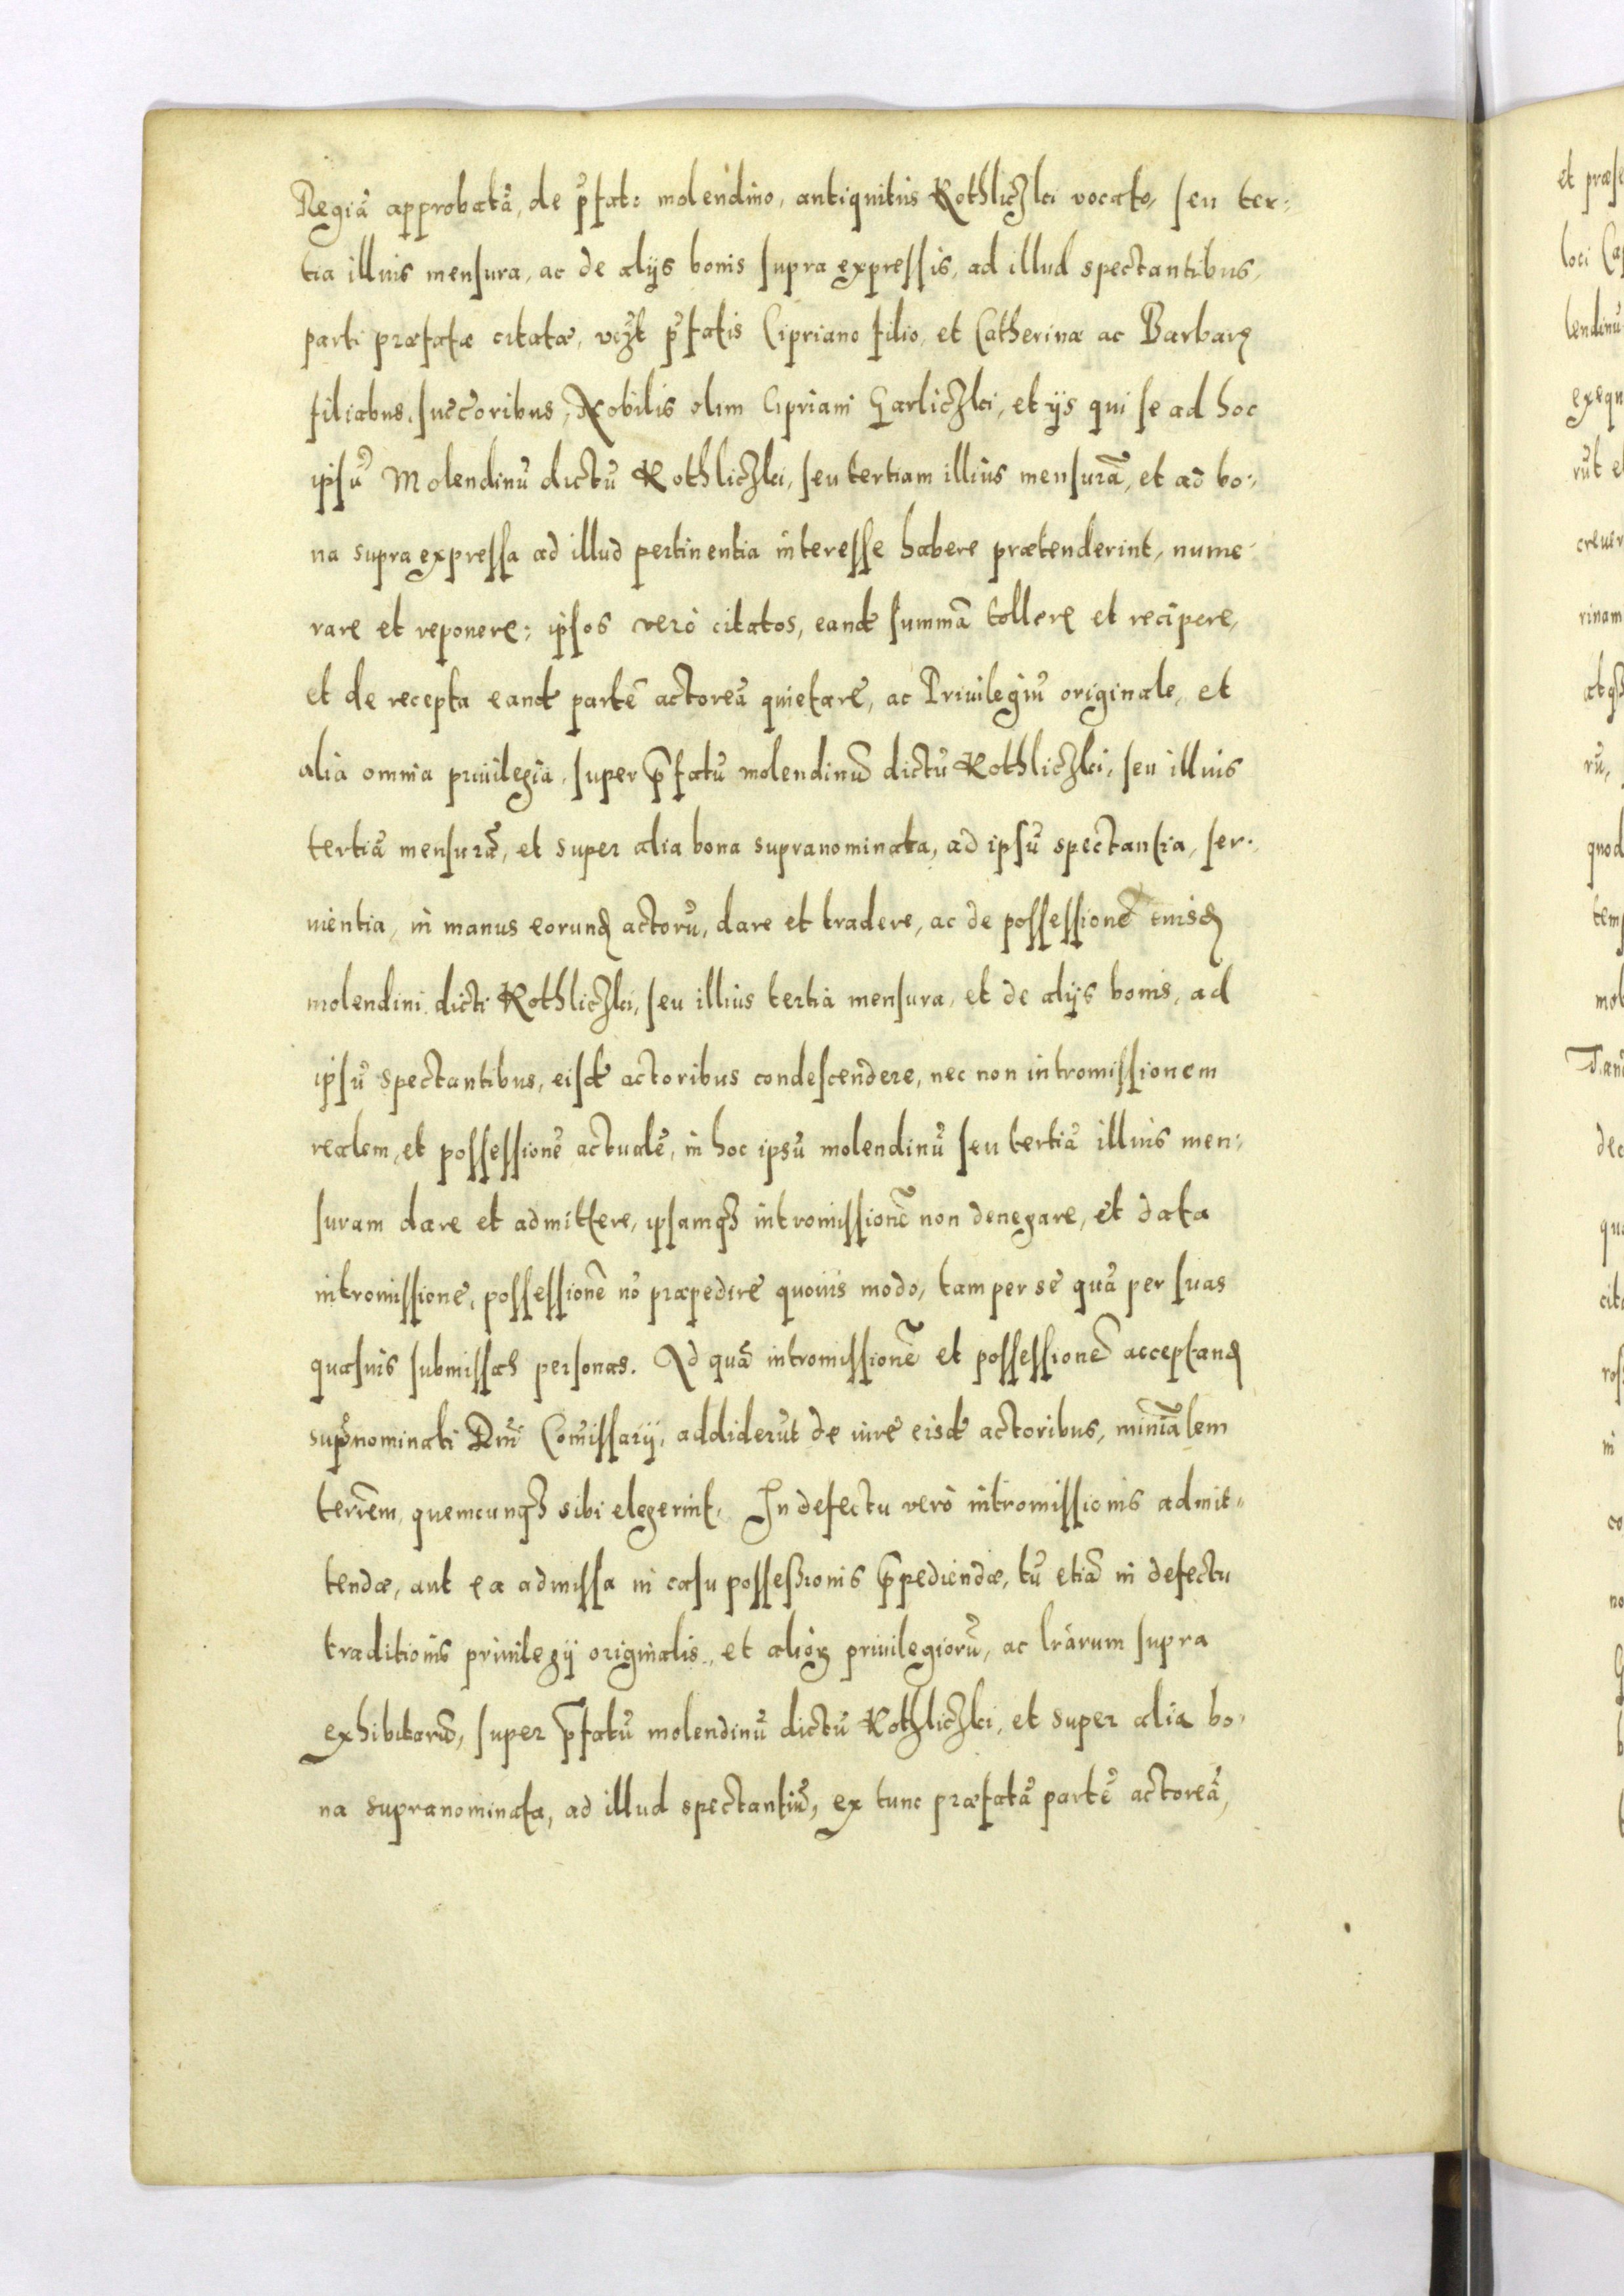 Regiã approbatã, de p̃fato molendino, antiquitus Kothliczki vocato, seu ter:
tia illius mensura, ac de alijs bonis supra expressis, ad illud spectantibus,
parti præfatæ citatæ, vczt p̃fatis Cipriano filio, et Catherinæ ac Barbaræ
filiabus, succõribus, Nobilis olim Cipriani Garliczki, et ijs qui se ad hoc
ipsũ Molendinũ dictũ Kothliczki, seu tertiam illius mensurã, et ad bo:
na supra expressa ad illud pertinentia interesse habere prætenderint, nume-
rare et reponere; ipsos verò citatos, eand summã tollere et recipere,
et de recepta eand partẽ actoreã quietare, ac Priuilegiũ originale, et
alia omnia priuilegia, super p̃fatũ molendinũ dictũ Kothliczki, seu illius
tertiã mensurã, et super alia bona supranominata, ad ipsũ spectantia, ser:
uientia, in manus eorund actorũ, dare et tradere, ac de possessionẽ eiusd
molendini dicti Kothliczki, seu illius tertia mensura, et de alijs bonis, ad
ipsũ spectantibus, eisd actoribus condescendere, nec non intromissionem
realem, et possessionẽ actualẽ, in hoc ipsũ molendinũ seu tertiã illius men:
suram dare et admittere, ipsamqȝ intromissionẽ non denegare, et data
intromissione, possessionẽ nõ præpedire quouis modo, tam per se quã per suas
quasuis submissas personas. Ad quã intromissionẽ et possessionẽ acceptand
sup̃nominati Dñi Com̃issarij, addiderũt de iure eisd actoribus, miniãlem
terr̃em, quemcunqȝ sibi elegerint. In defectu verò intromissionis admit=
tendæ, aut ea admissa in casu possessionis p̃pediendæ, tũ etiã in defectu
traditionis priuilegij originalis, et alioꝝ priuilegiorũ, ac lr̃arum supra
exhibitarũ, super p̃fatũ molendinũ dictũ Kothliczki, et super alia bo:
na supranominata, ad illud spectantiũ, ex tunc præfatã partẽ actoreã,
et præse
loci Ca
lendinũ
exequ
rũt e
creuer
rinam
atqȝ
rũ,
quod
tem
mol
Tan
dec
qu
cit
ros
in
co
no